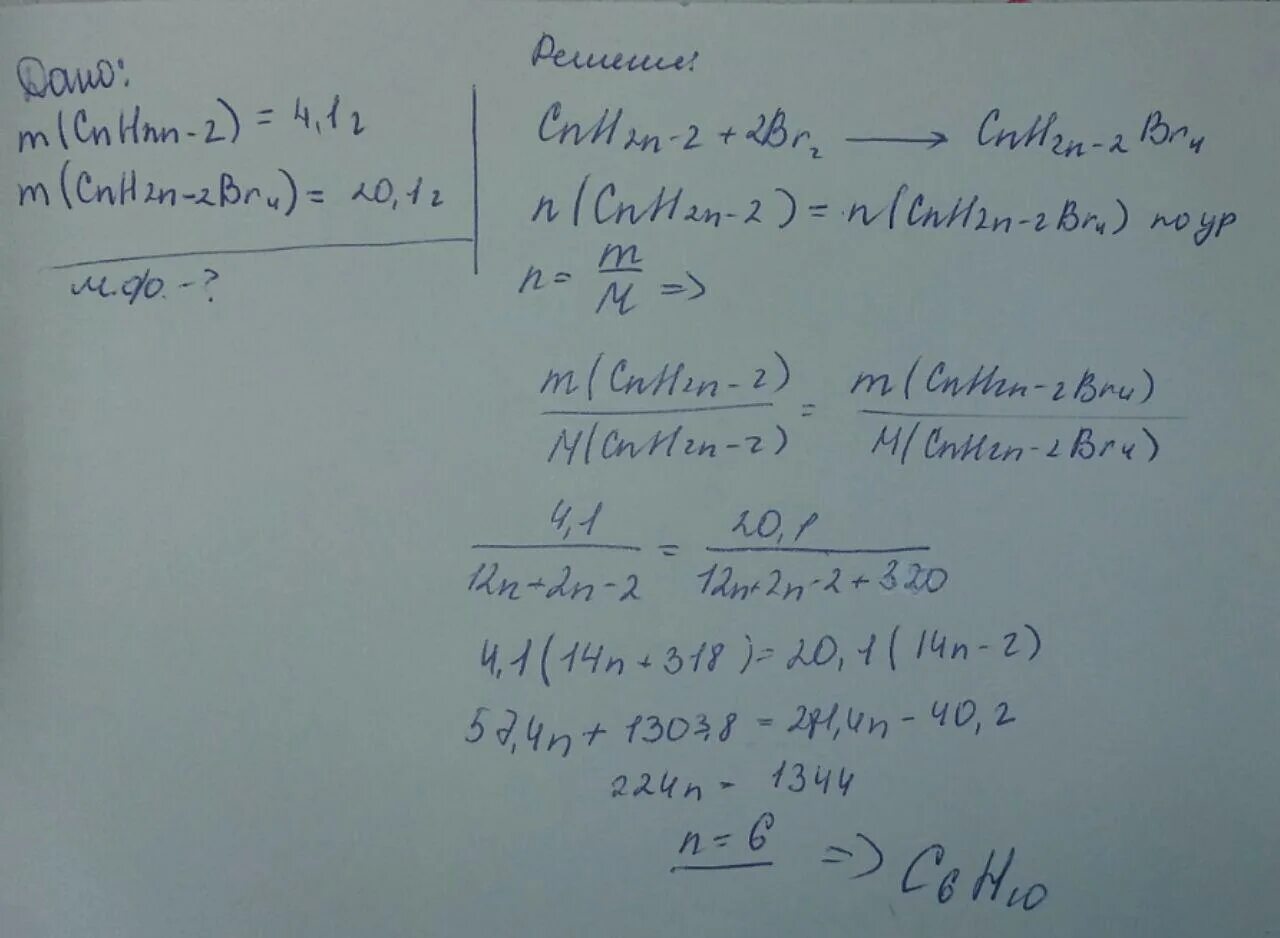 Дано:
m(CnHnn-2) = 4,1г
m(CnH2n-2Br4) = 20,1г
м.ф. -?
Решение:
CnH2n-2 + 2Br2 ⟶ CnH2n-2Br4
n(CnH2n-2) = n(CnH2n-2Br4) по ур
n = m/M =>
m(CnH2n-2)/M(CnH2n-2) = m(CnH2n-2Br4)/M(CnH2n-2Br4)
4,1/12n+2n-2 = 20,1/12n+2n-2+320
4,1(14n+318) = 20,1(14n-2)
57,4n + 1303,8 = 281,4n - 40,2
224n = 1344
n = 6 => C6H10